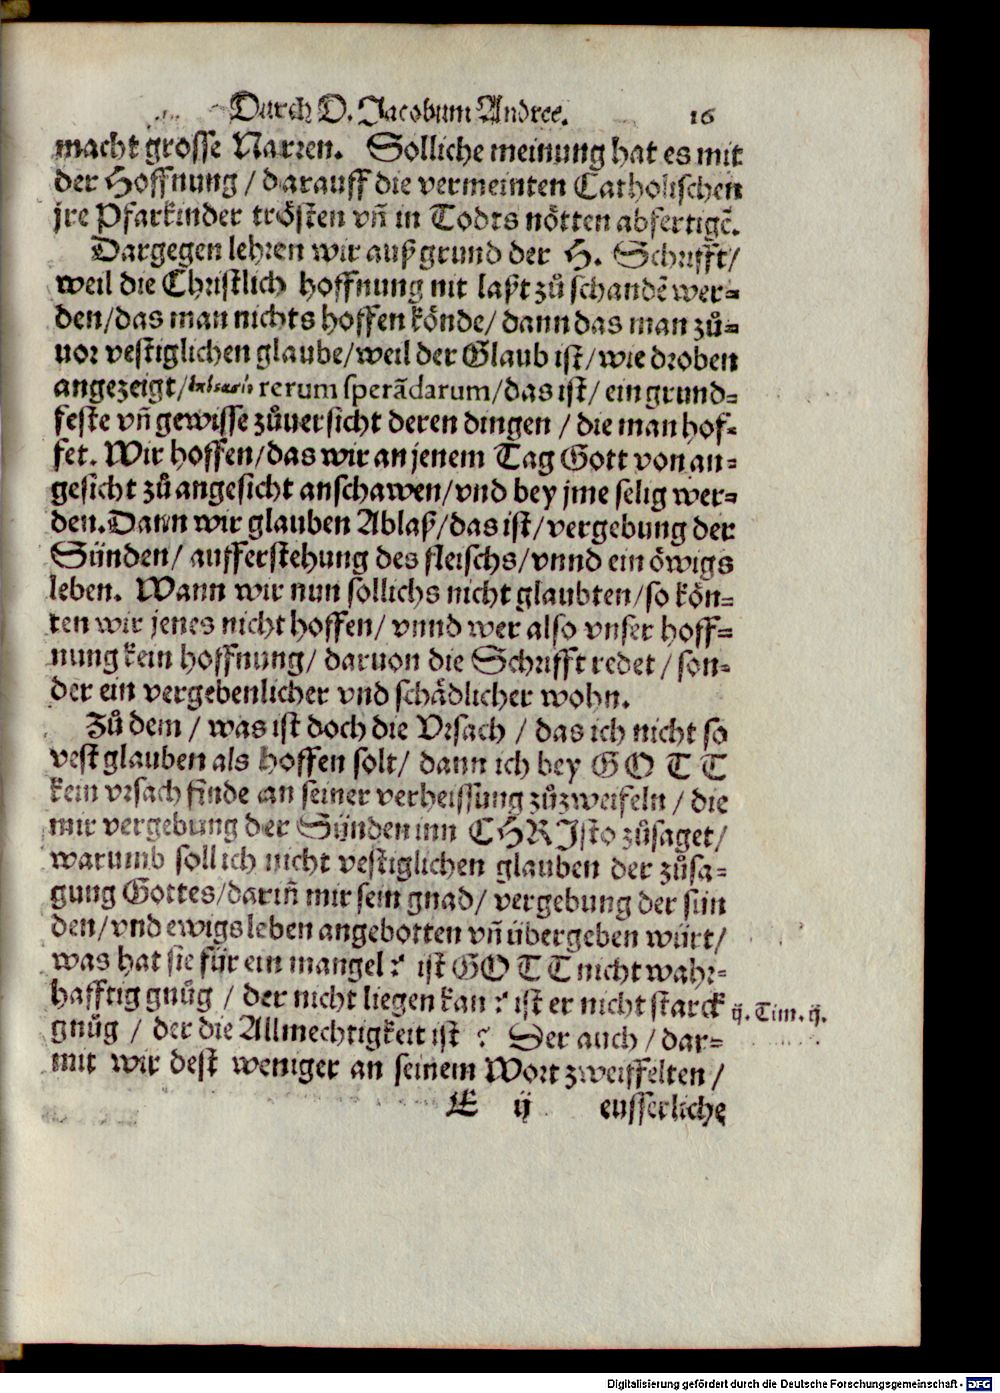 Durch D. Jacobum Andree. 16
macht grosse Narren. Solliche meinung hat es mit
der Hoffnung / darauff die vermeinten Catholischen
jre Pfarkinder trösten vñ in Todts nötten abfertigẽ.
Dargegen lehren wir auß grund der H. Schrifft/
weil die Christlich hoffnung nit laßt zů schandẽ wer-
den/das man nichts hoffen könde/ dann das man zů-
uor vestiglichen glaube/weil der Glaub ist/wie droben
angezeigt/ rerum sperãdarum/das ist/ ein grund-
feste vñ gewisse zůuersicht deren dingen / die man hof-
fet. Wir hoffen/das wir an jenem Tag Gott von an-
gesicht zů angesicht anschawen/vnd bey jme selig wer-
den. Dann wir glauben Ablaß/das ist/vergebung der
Sünden/ aufferstehung des fleischs/vnnd ein öwigs
leben. Wann wir nun sollichs nicht glaubten/so kön-
ten wir jenes nicht hoffen/ vnnd wer also vnser hoff-
nung kein hoffnung/ daruon die Schrifft redet / son-
der ein vergebenlicher vnd schädlicher wohn.
Zů dem / was ist doch die Vrsach / das ich nicht so
vest glauben als hoffen solt/ dann ich bey GOTT
kein vrsach finde an seiner verheissung zůzweifeln / die
mir vergebung der Sünden inn CHRIsto zůsaget/
warumb soll ich nicht vestiglichen glauben der zůsa-
gung Gottes/dariñ mir sein gnad/ vergebung der sün
den/vnd ewigs leben angebotten vñ übergeben würt/
was hat sie für ein mangel? ist GOTT nicht wahr-
hafftig gnůg / der nicht liegen kan? ist er nicht starck
ij. Tim. ij.
gnůg / der die Allmechtigkeit ist? Der auch / dar-
mit wir dest weniger an seinem Wort zweiffelten /
E ij eusserliche
Digitalisierung gefördert durch die Deutsche Forschungsgemeinschaft - DFG